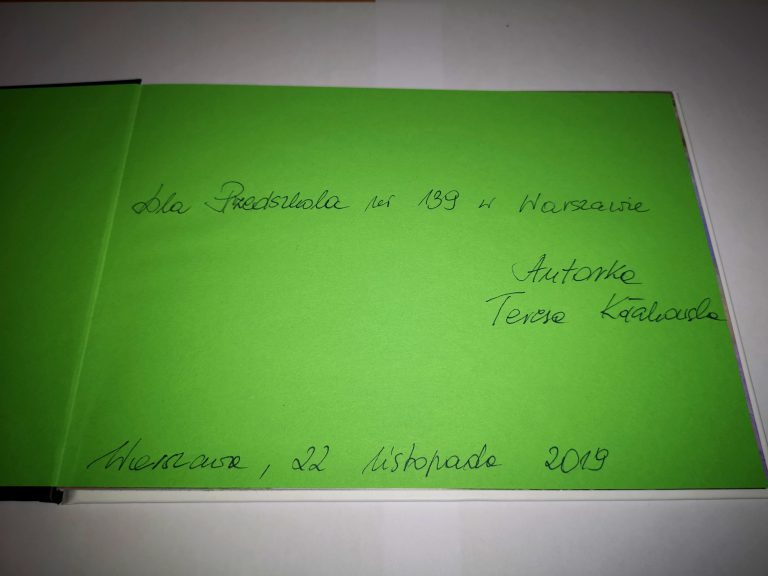 Dla Przedszkola nr 139 w Warszawie
Autorka
Teresa
Warszawa, 22 listopada 2019